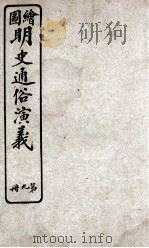 繪圖
明史通俗演義
第九冊
mtoou.info